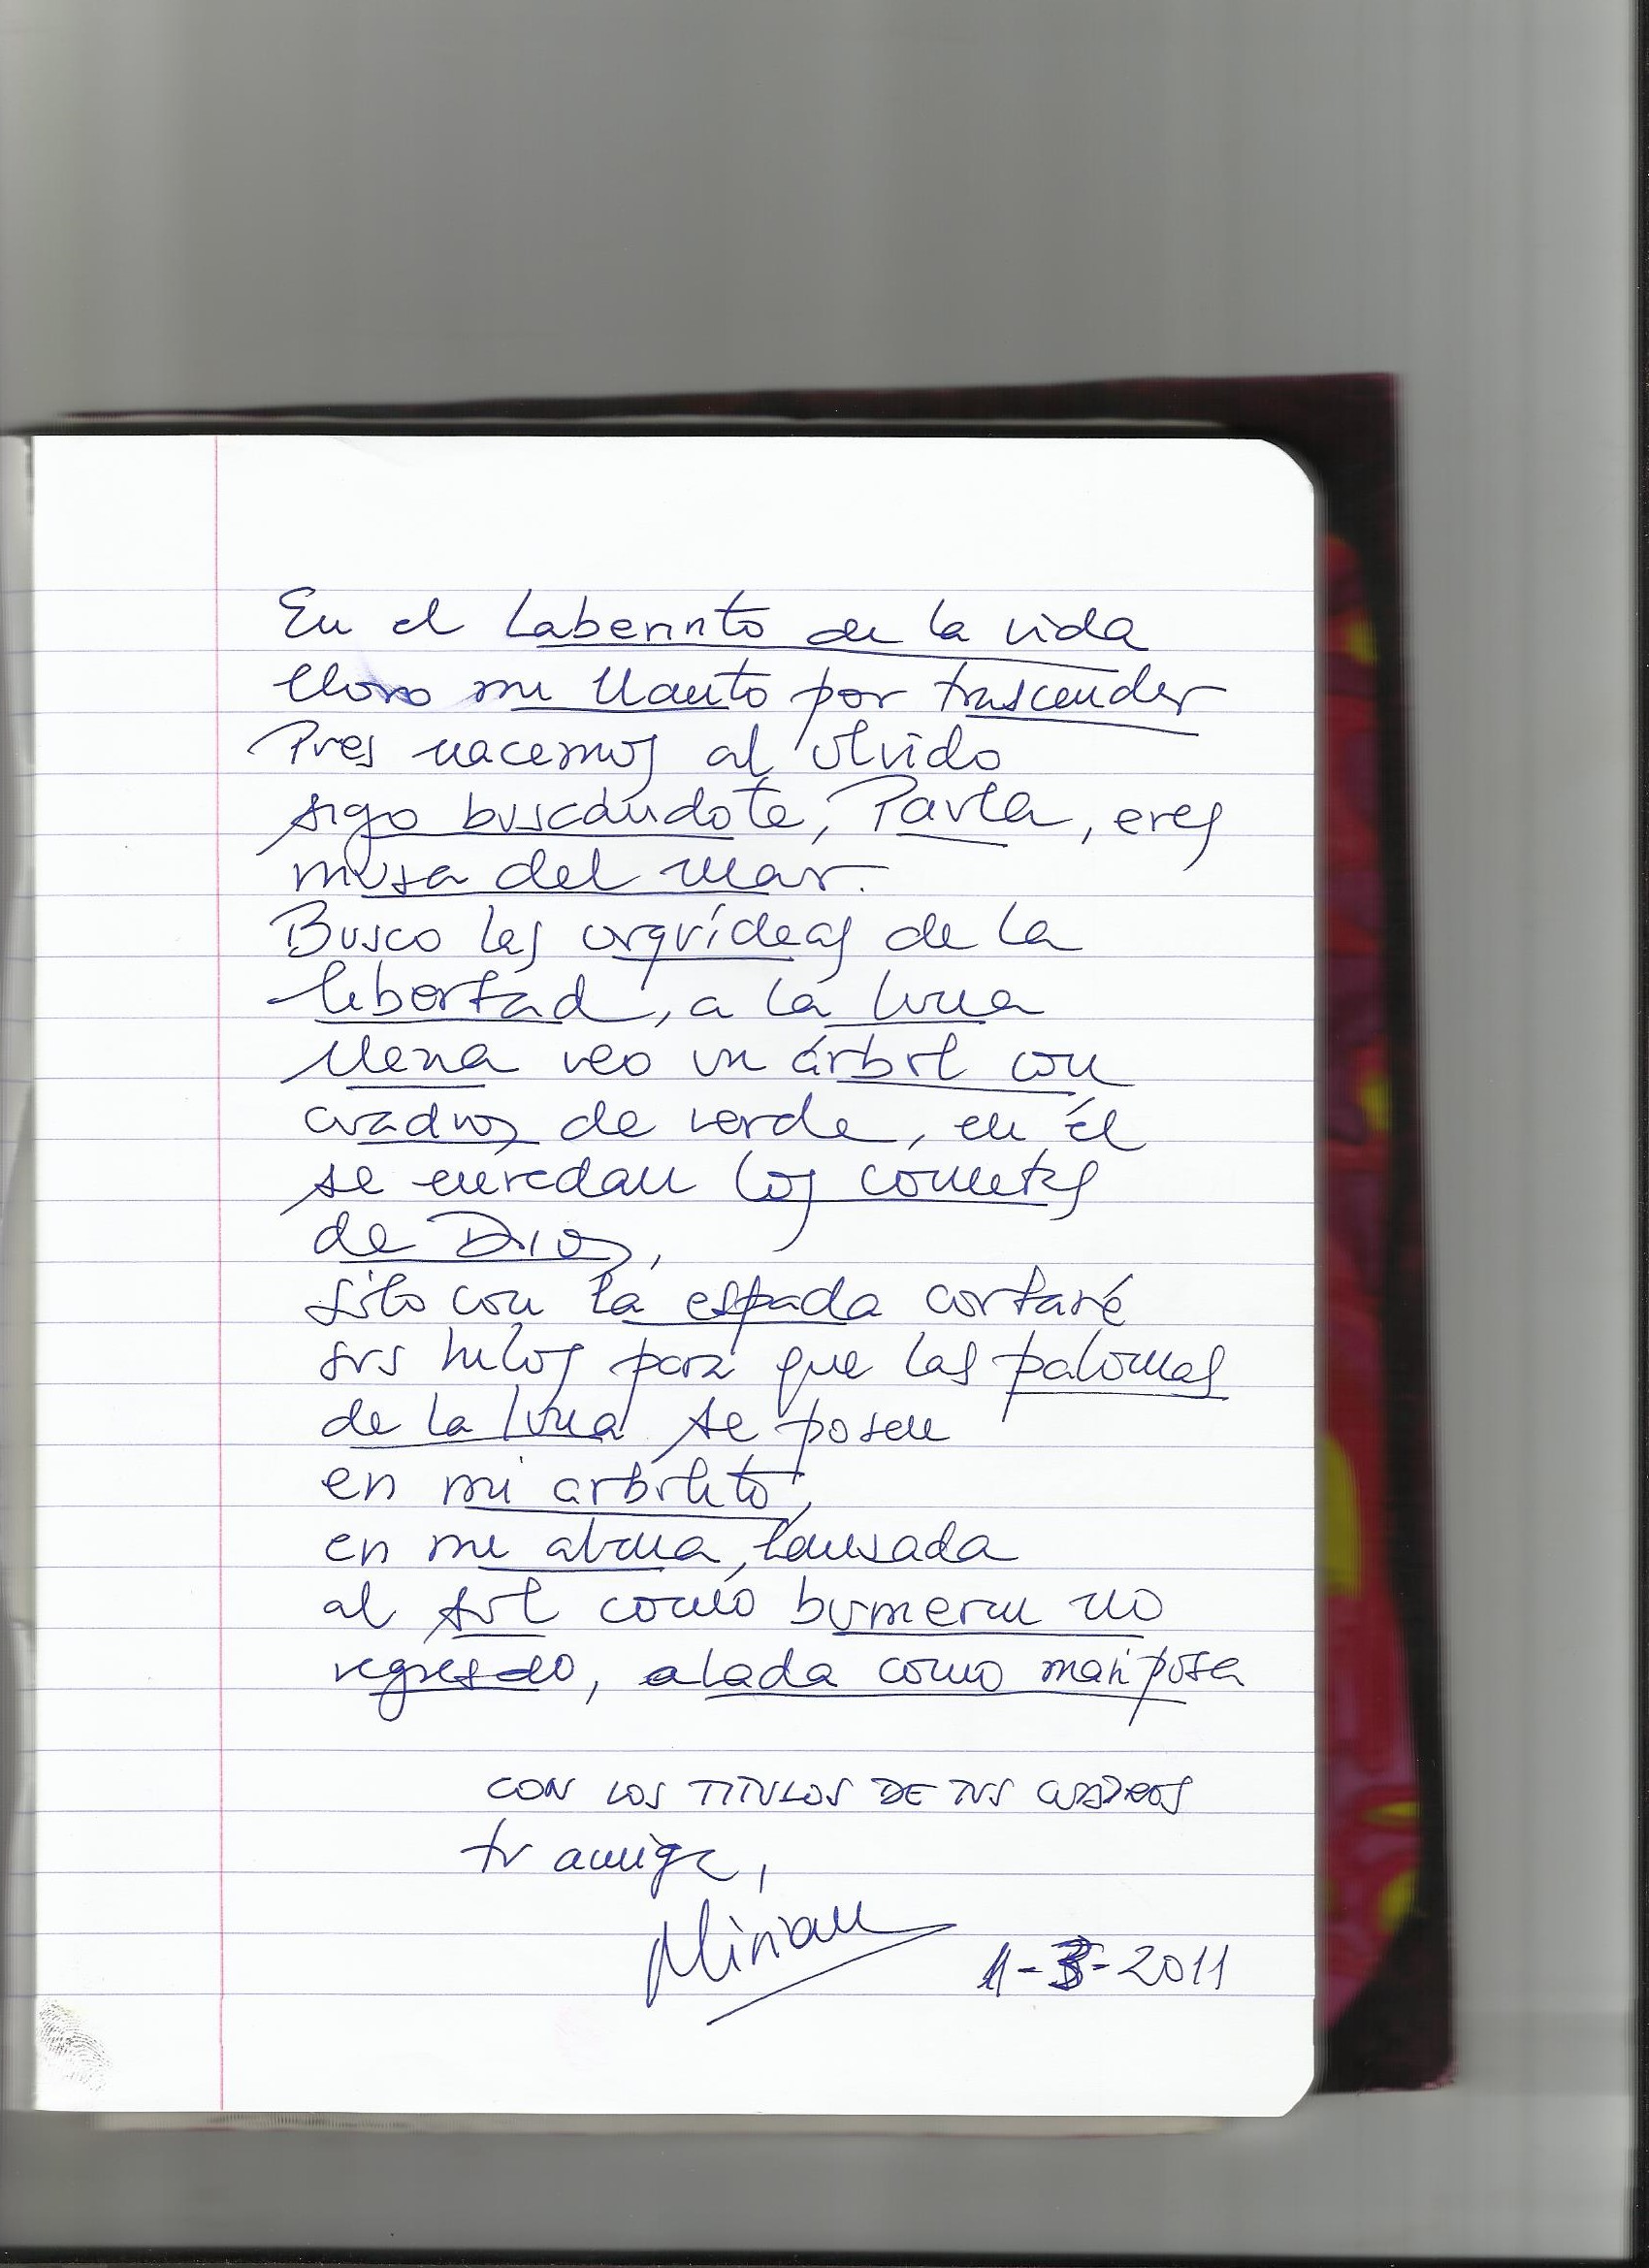 En el Laberinto de la vida
lloro mi llanto por trascender
Pues nacemos al olvido
sigo buscándote, Paula, eres
musa del mar.
Busco las orquídeas de la
libertad, a la luna
llena veo un árbol con
cuadros de verde, en él
se enredan los cometas
de Dios,
sólo con la espada cortaré
sus hilos para que las palomas
de la luna se posen
en mi arbolito,
en mi alma, lanzada
al sol como bumeran no
regresado, alada como mariposa
CON LOS TITULOS DE TUS CUADROS
tu amiga,
Mirian
1-3-2011